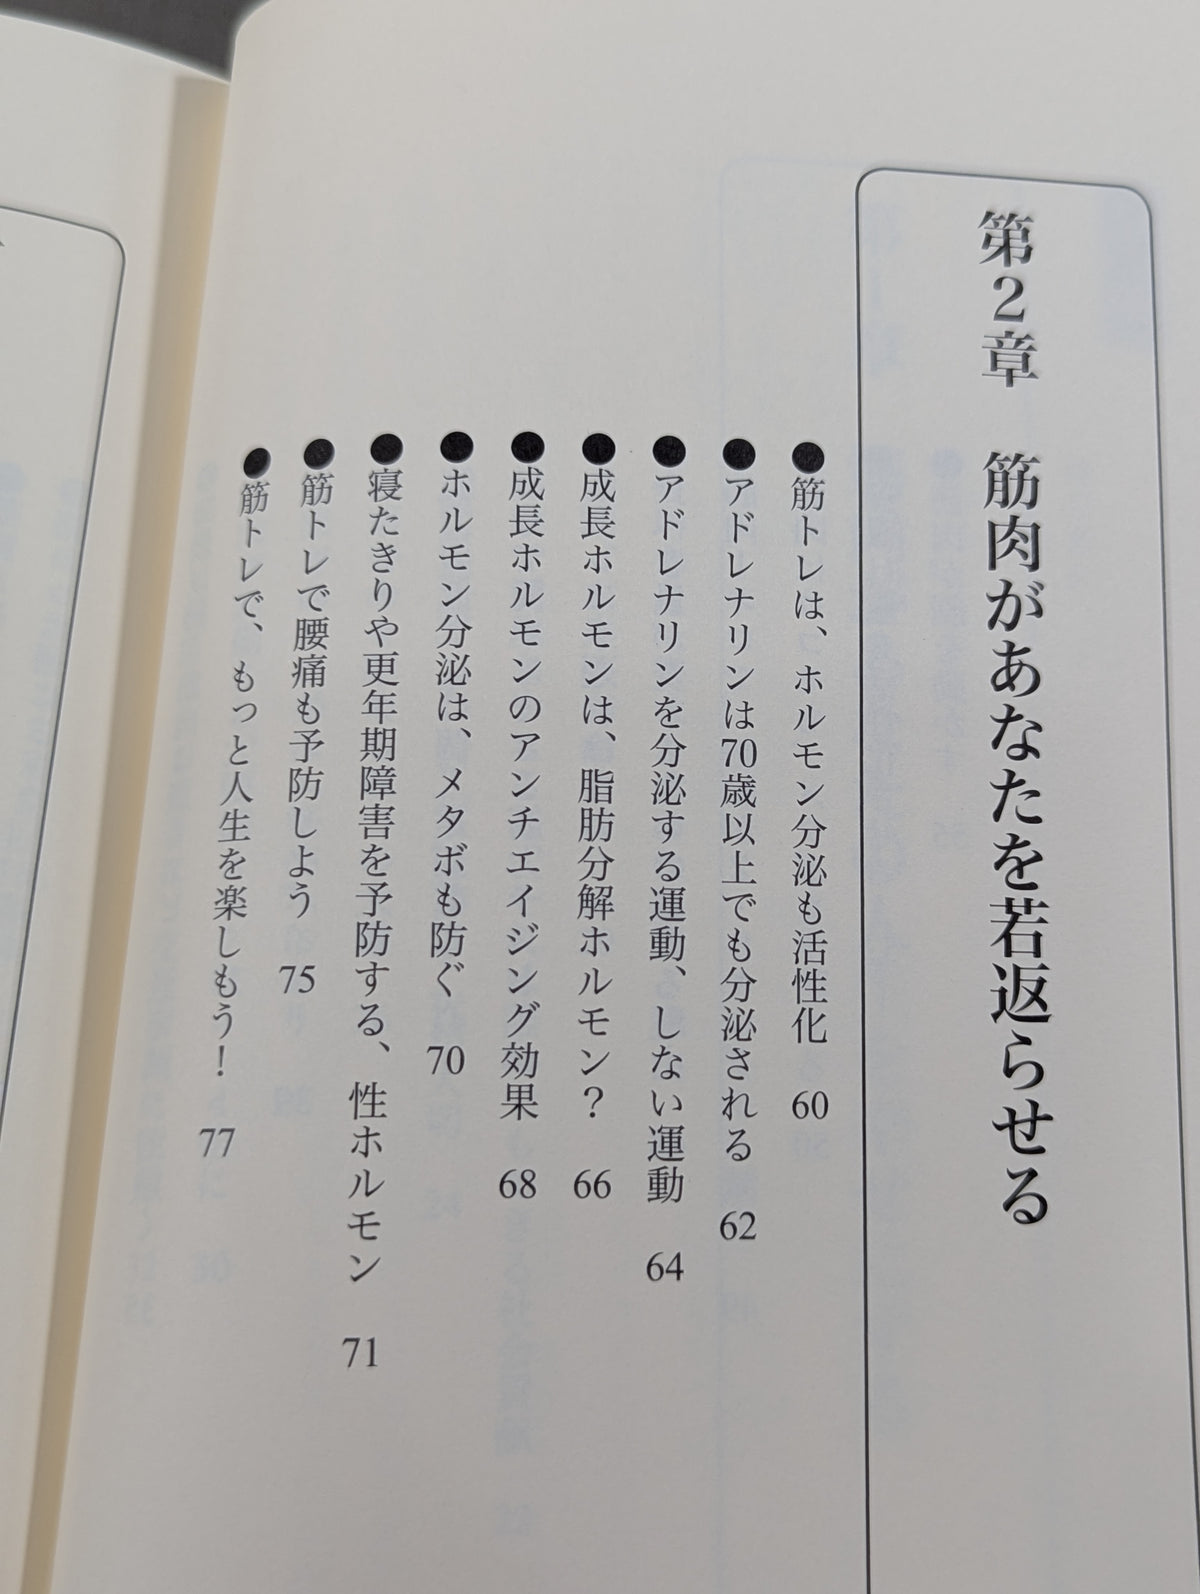 第2章　筋肉があなたを若返らせる
●筋トレは、ホルモン分泌も活性化　60
●アドレナリンは70歳以上でも分泌される　62
●アドレナリンを分泌する運動、しない運動　64
●成長ホルモンは、脂肪分解ホルモン？　66
●成長ホルモンのアンチエイジング効果　68
●ホルモン分泌は、メタボも防ぐ　70
●寝たきりや更年期障害を予防する、性ホルモン　71
●筋トレで腰痛も予防しよう　75
●筋トレで、もっと人生を楽しもう！　77